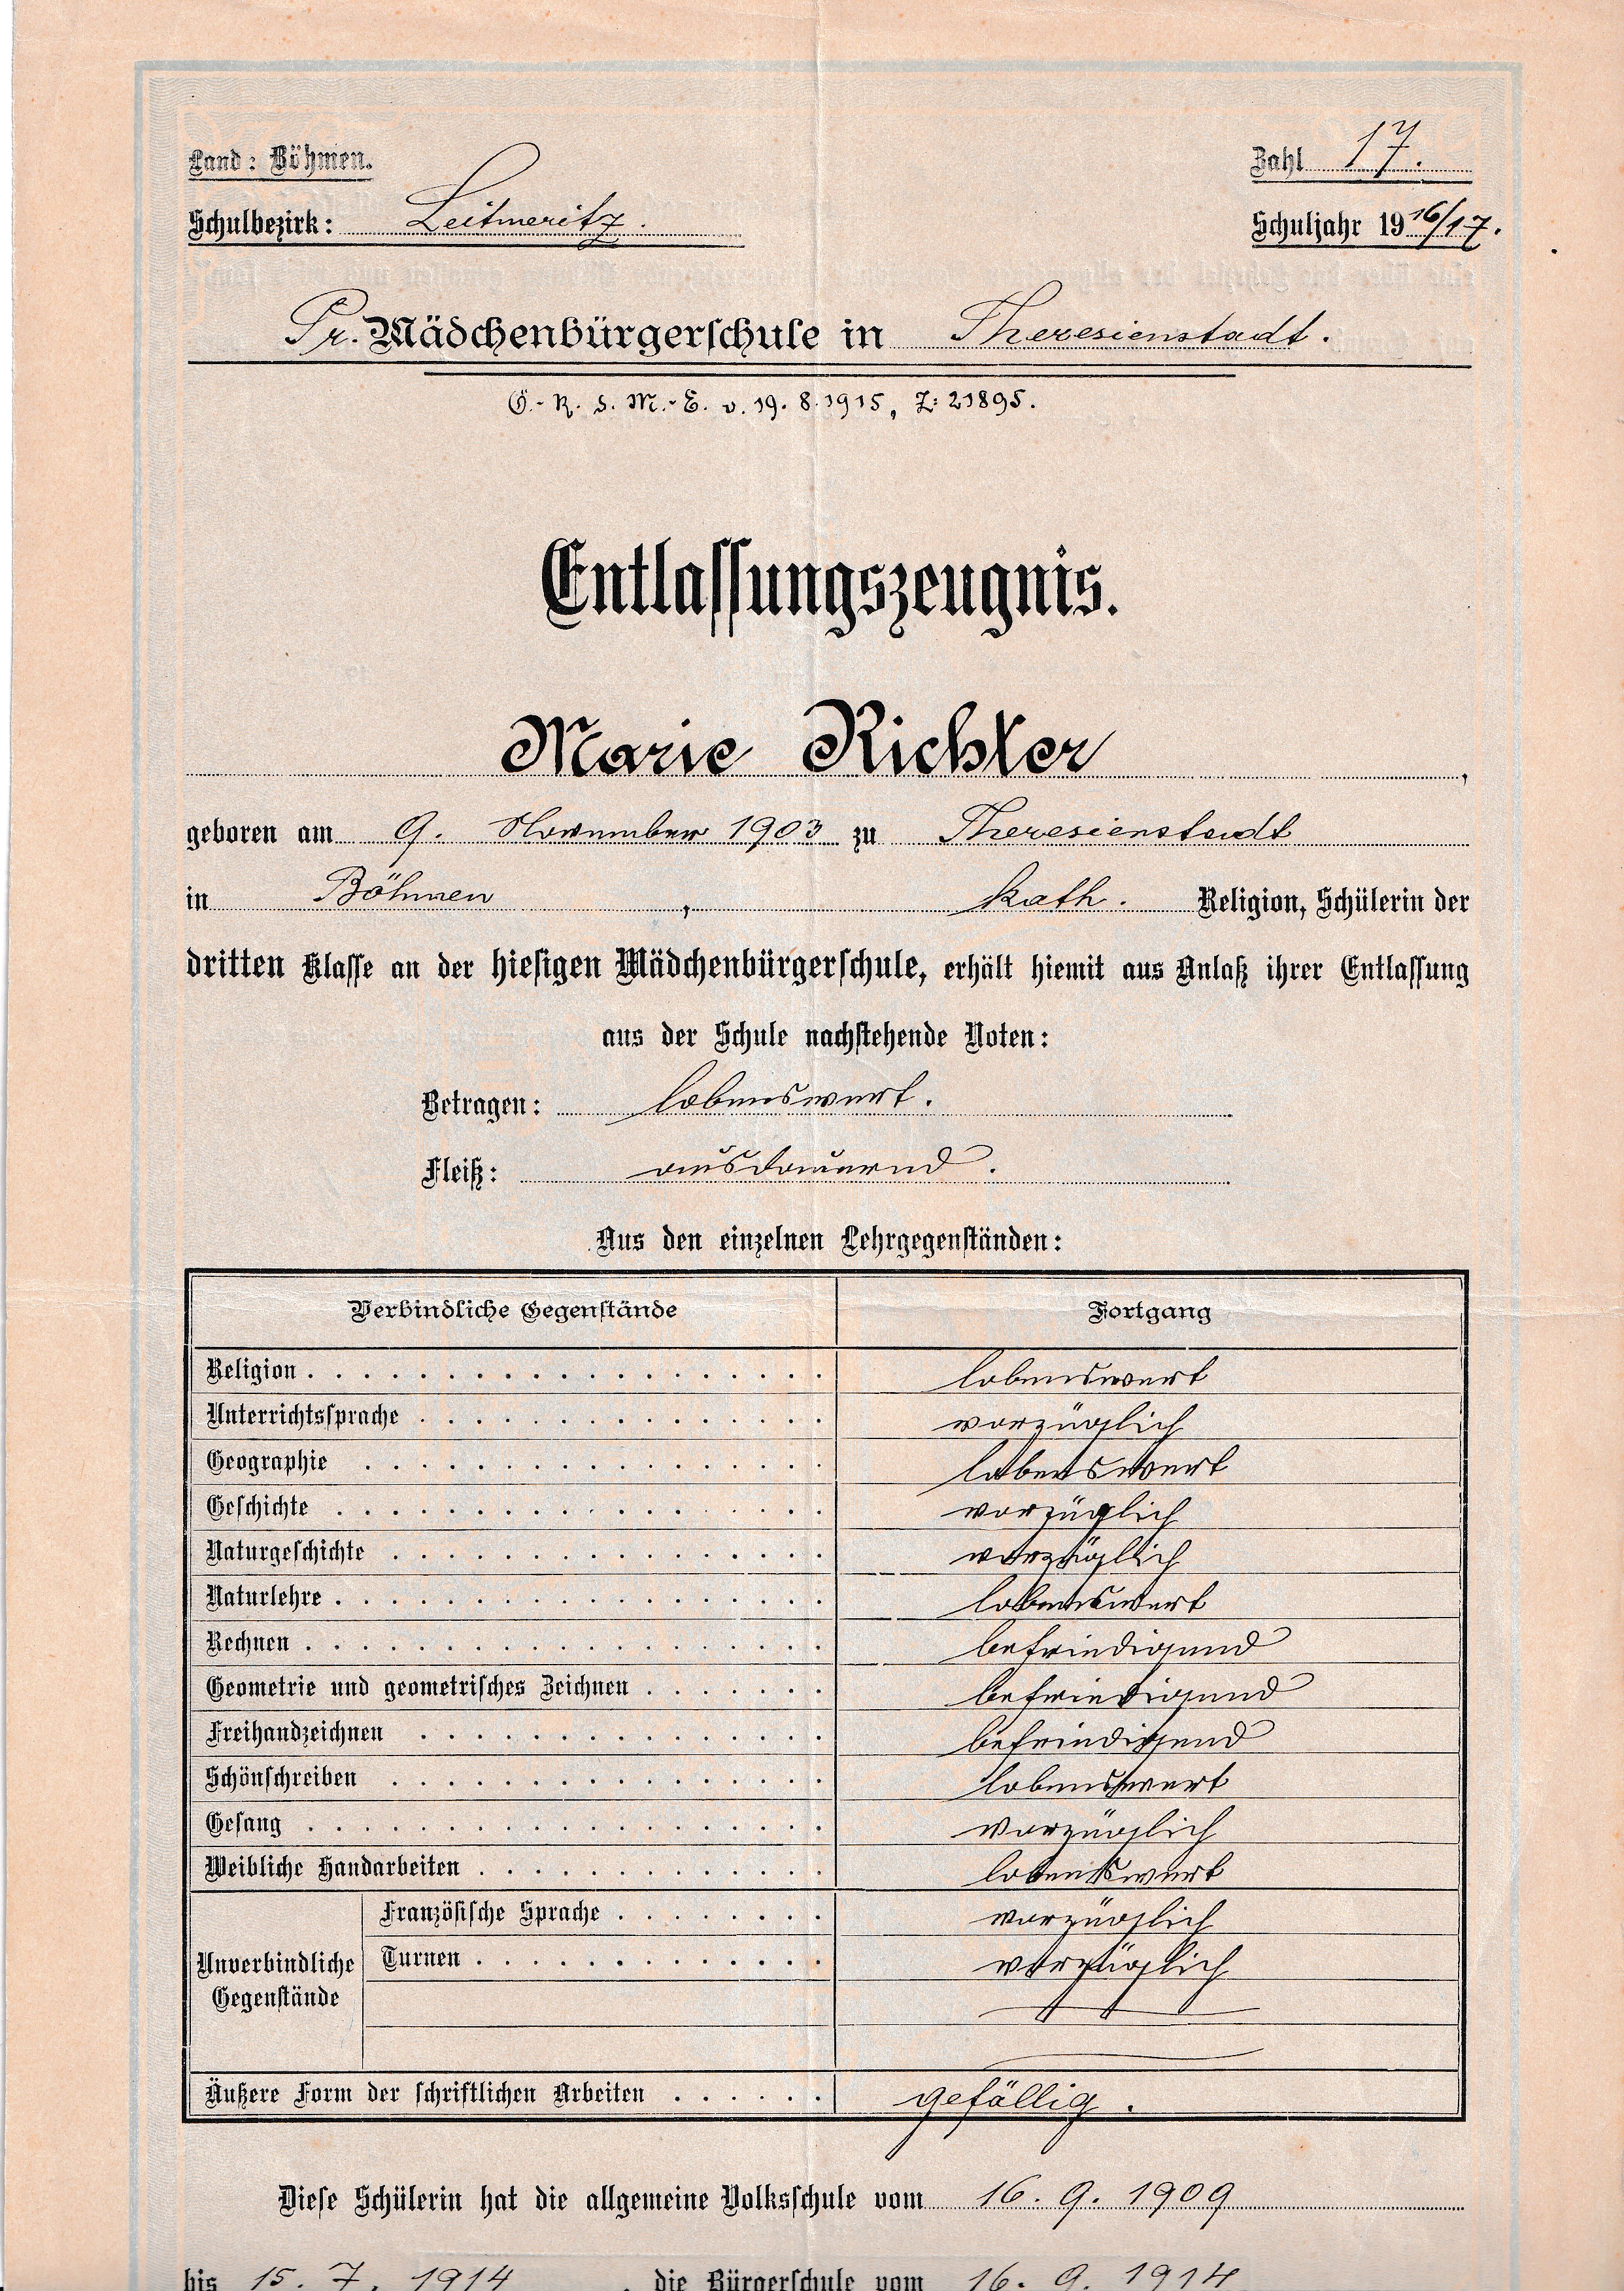 Land: Böhmen.
Zahl 17.
Schulbezirk: Leitmeritz.
Schuljahr 1916/17.
Pr. Mädchenbürgerschule in Theresienstadt.
Ö.-R. d. M.-E. v. 19. 8. 1915, Z: 21895.
Entlassungszeugnis.
Marie Richter,
geboren am 9. November 1903 zu Theresienstadt
in Böhmen, kath. Religion, Schülerin der
dritten Klasse an der hiesigen Mädchenbürgerschule, erhält hiemit aus Anlaß ihrer Entlassung
aus der Schule nachstehende Noten:
Betragen: lobenswert.
Fleiß: ausdauernd.
Aus den einzelnen Lehrgegenständen:
Verbindliche Gegenstände Fortgang
Religion lobenswert
Unterrichtssprache vorzüglich
Geographie lobenswert
Geschichte vorzüglich
Naturgeschichte vorzüglich
Naturlehre lobenswert
Rechnen befriedigend
Geometrie und geometrisches Zeichnen befriedigend
Freihandzeichnen befriedigend
Schönschreiben lobenswert
Gesang vorzüglich
Weibliche Handarbeiten lobenswert
Unverbindliche Gegenstände
Französische Sprache vorzüglich
Turnen vorzüglich
Äußere Form der schriftlichen Arbeiten gefällig.
Diese Schülerin hat die allgemeine Volksschule vom 16. 9. 1909
bis 15. 7. 1914, die Bürgerschule vom 16. 9. 1914